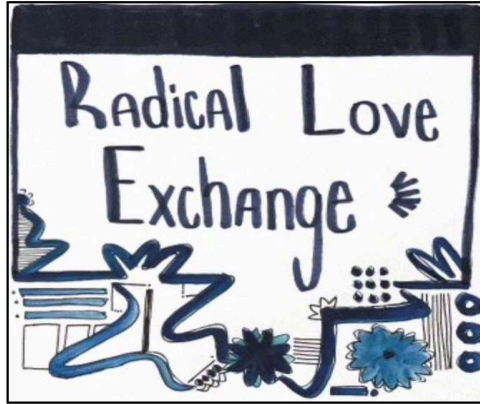 Radical Love
Exchange